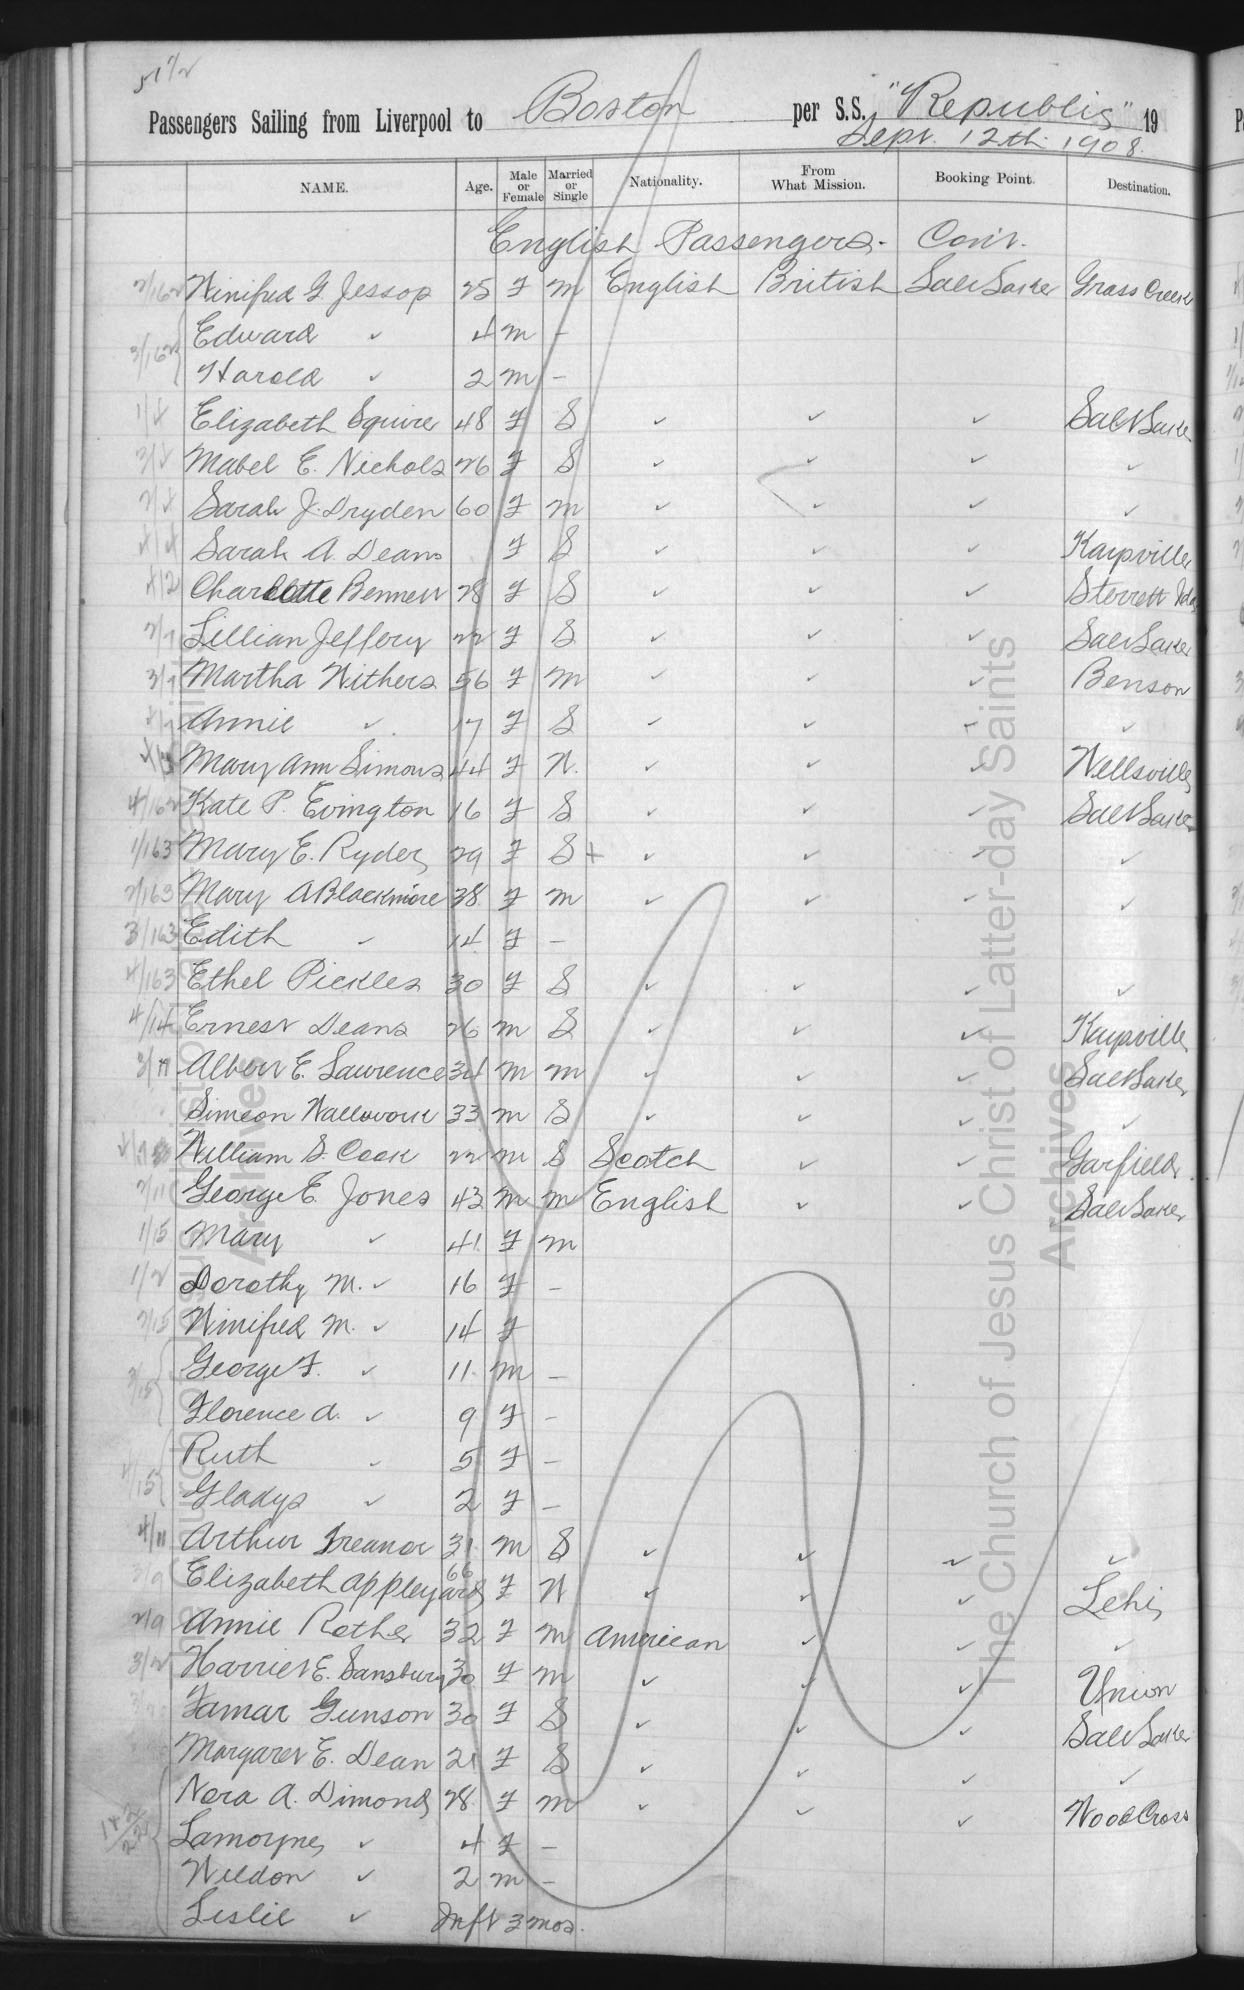 Passengers Sailing from Liverpool to Boston per S.S. "Republic" 19
Sept. 12th 1908.
NAME. Age. Male or Female Married or Single Nationality. From What Mission. Booking Point. Destination.
English Passengers - Con't.
2/162 Winifred G Jessop 25 F M English British Salt Lake Grass Creek
Edward ✓ 4 M -
3/162 Harold ✓ 2 M -
Elizabeth Squires 48 F S ✓ ✓ ✓ Salt Lake
Mabel E. Nichols 26 F S ✓ ✓ ✓ ✓
Sarah J. Dryden 60 F M ✓ ✓ ✓ ✓
Sarah A. Deans F S ✓ ✓ ✓ Kaysville
Charlotte Bennett 28 F S ✓ ✓ ✓ Sterrett Ida
2/7 Lillian Jeffery 22 F S ✓ ✓ ✓ Salt Lake
3/7 Martha Withers 56 F M ✓ ✓ ✓ Benson
Annie ✓ 17 F S ✓ ✓ ✓ ✓
Mary Ann Simons 44 F W. ✓ ✓ ✓ Wellsville
4/162 Kate P. Evington 16 F S ✓ ✓ ✓ Salt Lake
1/163 Mary E. Ryder 29 F S + ✓ ✓ ✓ ✓
2/163 Mary A Blackmore 38 F M ✓ ✓ ✓ ✓
3/163 Edith ✓ 14 F -
4/163 Ethel Pickles 30 F S ✓ ✓ ✓ ✓
4/14 Ernest Deans 26 M S ✓ ✓ ✓ Kaysville
3/11 Albert E. Lawrence 34 M M ✓ ✓ ✓ Salt Lake
Simeon Wallwork 33 M S ✓ ✓ ✓ ✓
William S. Cook 22 M S Scotch ✓ ✓ Garfield
2/11 George E. Jones 43 M M English ✓ ✓ Salt Lake
1/15 Mary ✓ 41 F M
1/2 Dorothy M. ✓ 16 F -
2/15 Winifred M. ✓ 14 F
George F. ✓ 11 M -
3/15 Florence A. ✓ 9 F -
Ruth ✓ 5 F -
4/15 Gladys ✓ 2 F -
4/11 Arthur Treanor 31 M S ✓ ✓ ✓ ✓
3/9 Elizabeth Appleyard 66 F W ✓ ✓ ✓ Lehi
2/9 Annie Rother 32 F M American ✓ ✓ ✓
3/2 Harriet E. Sansbury 30 F M ✓ ✓ ✓ Union
Tamar Gunson 30 F S ✓ ✓ ✓ Salt Lake
Margaret E. Dean 21 F S ✓ ✓ ✓ ✓
Nora A. Dimond 28 F M ✓ ✓ ✓ Wood Cross
Lamoyne ✓ 4 F -
Weldon ✓ 2 M -
Leslie ✓ Inft 3 mos.
The Church of Jesus Christ of Latter-day Saints
Archives